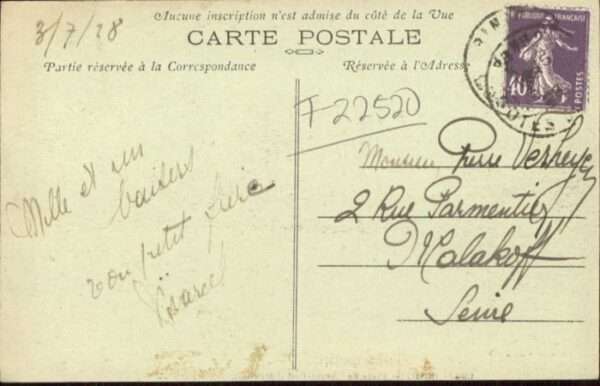 Aucune inscription n'est admise du côté de la Vue
3/7/28
CARTE POSTALE
Partie réservée à la Correspondance
Réservée à l'Adresse
RÉPUBLIQUE FRANÇAISE
40
POSTES
F 22520
Mille et un
baisers
petit frère
Monsieur Pierre
2 Rue Parmentier
Malakoff
Seine